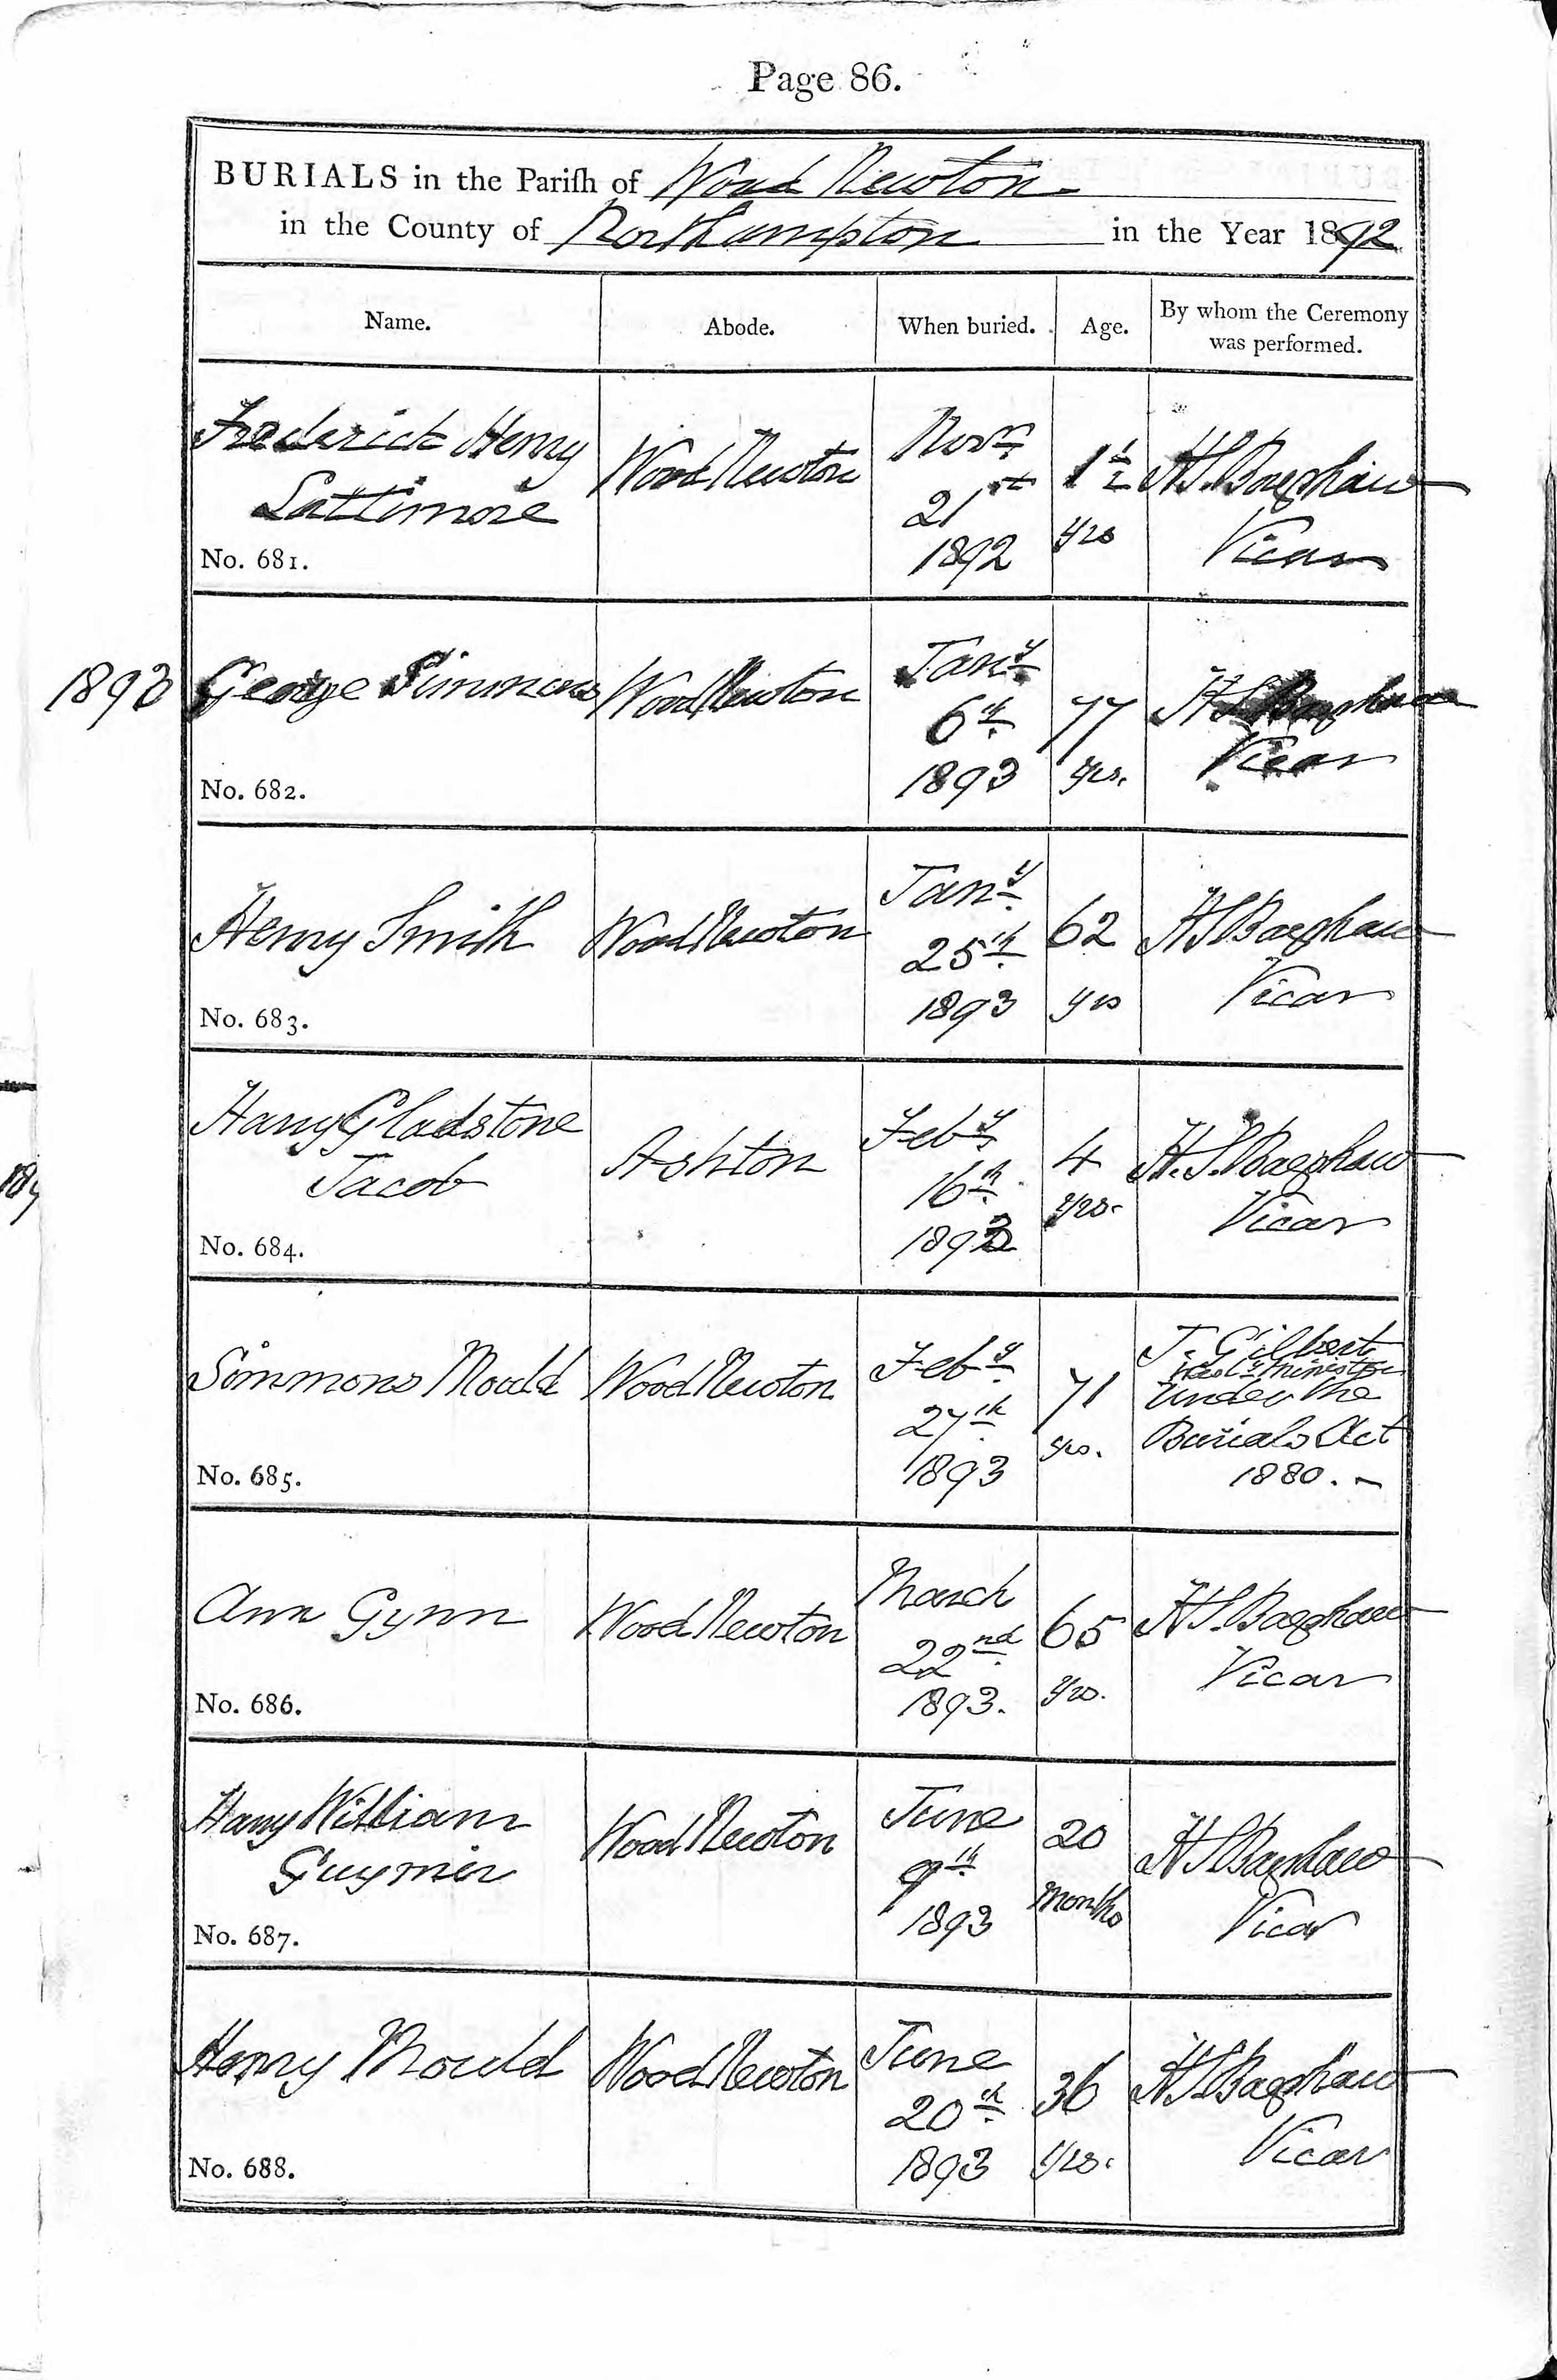 Page 86.
BURIALS in the Pariſh of Wood Newton
in the County of Northampton in the Year 1892
Name. Abode. When buried. Age. By whom the Ceremony was performed.
Frederick Henry
Lattimore
No. 681.
Wood Newton
Novr
21st
1892
1½
yrs
H.S. Bagshaw
Vicar
1893
George Simmons
No. 682.
Wood Newton
Jany
6th
1893
77
yrs.
H S Bagshaw
Vicar
Henry Smith
No. 683.
Wood Newton
Jany
25th
1893
62
yrs
H S Bagshaw
Vicar
Harry Gladstone
Jacob
No. 684.
Ashton
Feby
16th
1893
4
yrs.
H. S. Bagshaw
Vicar
Simmons Mould
No. 685.
Wood Newton
Feby
27th
1893
71
yrs.
J. Gilbert
Minister
under the
Burials Act
1880.
Ann Gynn
No. 686.
Wood Newton
March
22nd
1893.
65
yrs.
H S. Bagshaw
Vicar
Harry William
Guymer
No. 687.
Wood Newton
June
9th
1893
20
months
H S Bagshaw
Vicar
Henry Mould
No. 688.
Wood Newton
June
20th
1893
36
yrs.
H S. Bagshaw
Vicar